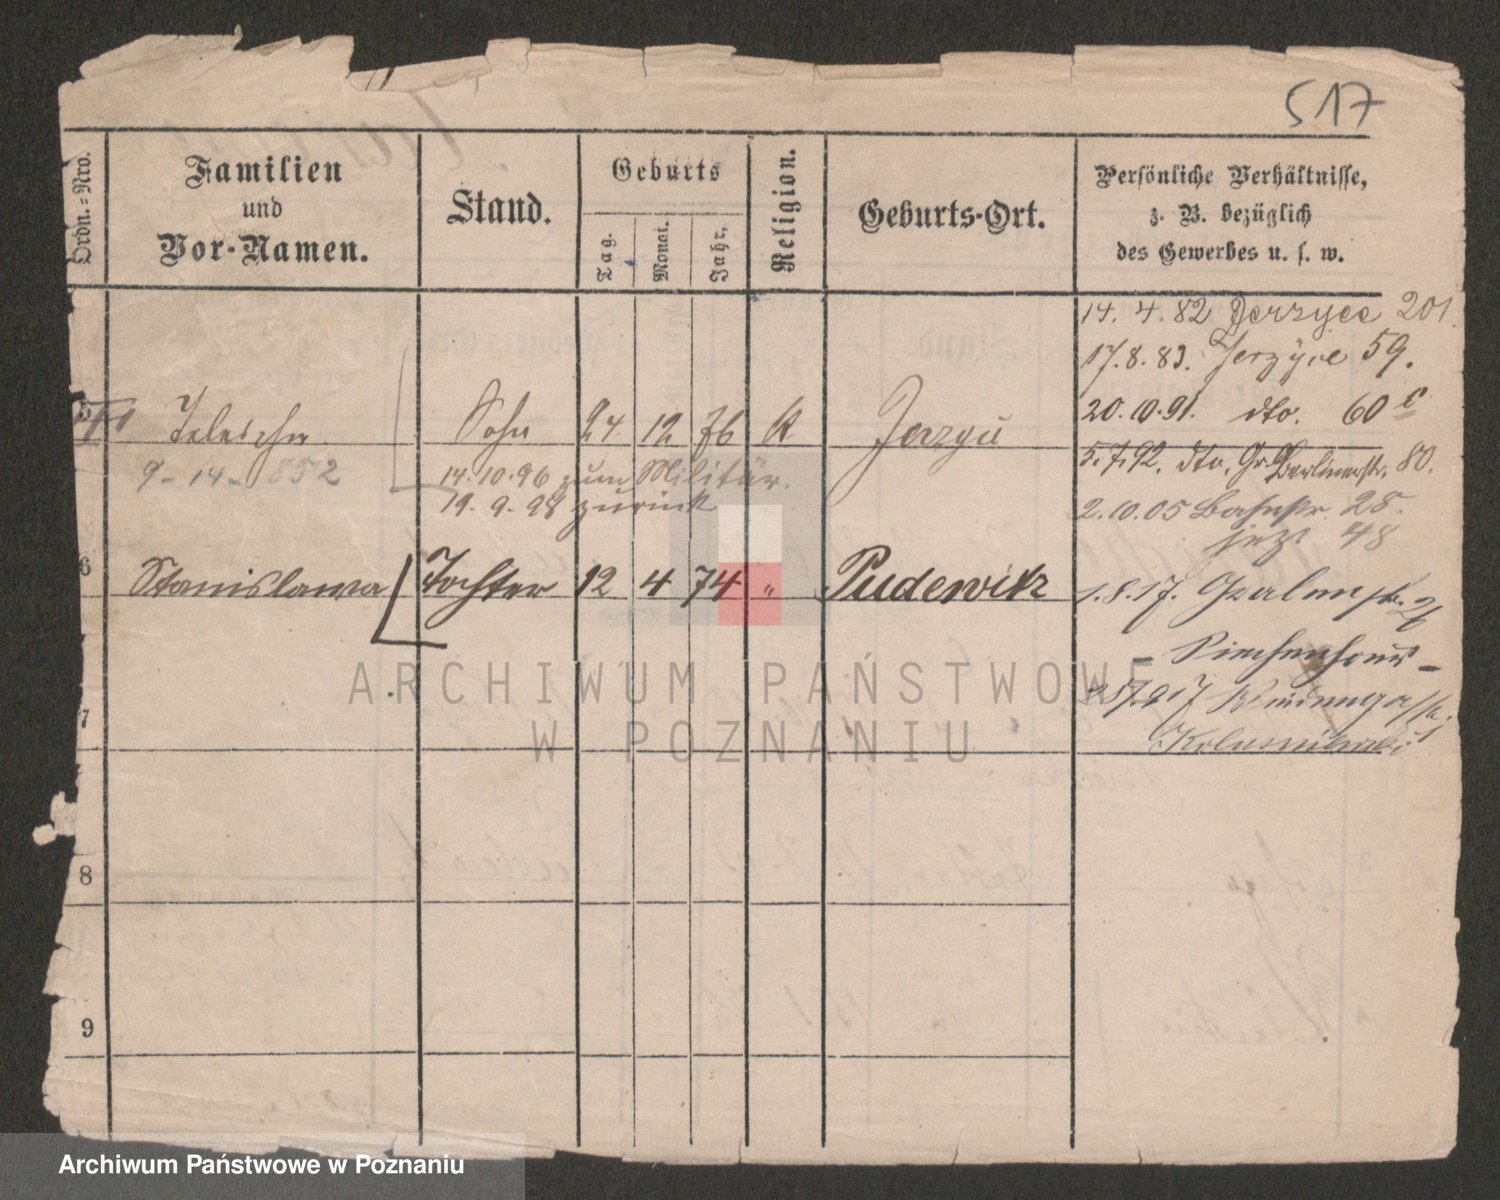 517
Ordn.=Nro.
Familien
und
Vor-Namen.
Stand.
Geburts
Tag.
Monat.
Jahr.
Religion.
Geburts-Ort.
Persönliche Verhältnisse,
z. B. bezüglich
des Gewerbes u. s. w.
14. 4. 82 Jerzyce 201
17. 8. 83. Jerzyce 59.
20.10.91. dto. 60 c
5 Sohn 24 12 76 K.
5.7.92. dto. Gr. Berlinerstr. 80.
9-14-852
14.10.96 zum Militär.
19. 9. 98 zurück
2.10.05 Bahnstr. 28.
jezt 48
6 Stanislawa Tochter 12 4 74 " Pudewitz
1.8.17.
7
8
9
ARCHIWUM PAŃSTWOWE
W POZNANIU
Archiwum Państwowe w Poznaniu